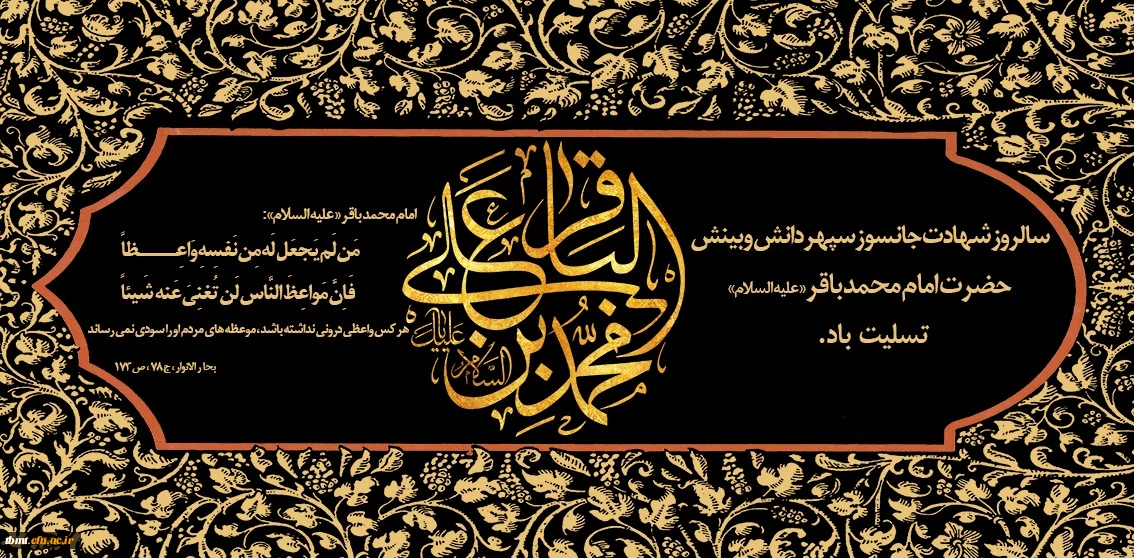 سالروز شهادت جانسوز سپهر دانش و بینش
حضرت امام محمد باقر «علیه السلام»
تسلیت باد.
محمد بن علی الباقر
علیک
السلام
امام محمد باقر «علیه السلام»:
مَن لَم یَجعَل لَه مِن نَفسِهِ وَاعِظاً
فَاِنَّ مَواعِظَ النَّاسِ لَن تُغنِیَ عَنه شَیئاً
هر کس واعظی درونی نداشته باشد، موعظه های مردم او را سودی نمی رساند
بحار الانوار، ج ۷۸، ص ۱۷۳
tbmt.cfu.ac.ir